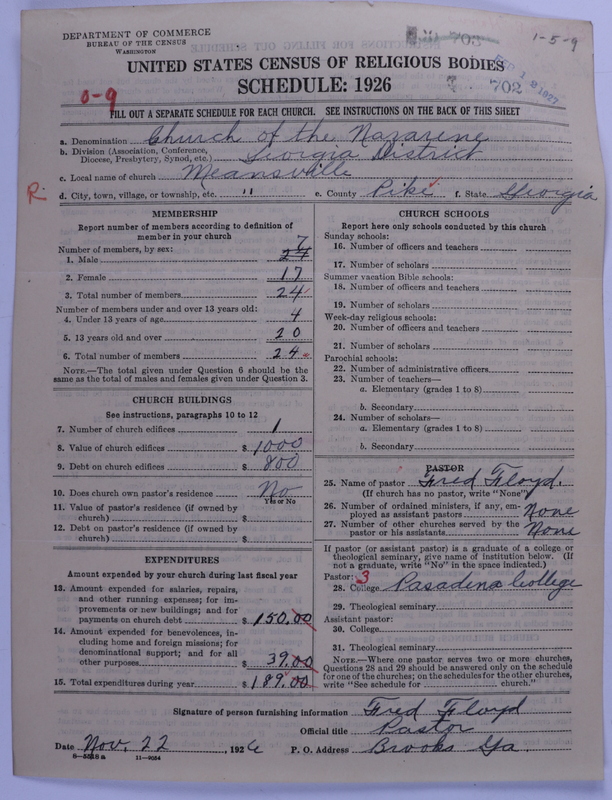 DEPARTMENT OF COMMERCE
BUREAU OF THE CENSUS
WASHINGTON
703
1-5-9
UNITED STATES CENSUS OF RELIGIOUS BODIES
SCHEDULE: 1926
702
1927
0-9
FILL OUT A SEPARATE SCHEDULE FOR EACH CHURCH. SEE INSTRUCTIONS ON THE BACK OF THIS SHEET
a. Denomination Church of the Nazarene
b. Division (Association, Conference, Diocese, Presbytery, Synod, etc.) Georgia District
c. Local name of church Meansville
R.
d. City, town, village, or township, etc. " e. County Pike f. State Georgia
MEMBERSHIP
Report number of members according to definition of
member in your church
Number of members, by sex:
1. Male 24 7
2. Female 17
3. Total number of members 24
Number of members under and over 13 years old:
4. Under 13 years of age 4
5. 13 years old and over 20
6. Total number of members 24
NOTE.—The total given under Question 6 should be
same as the total of males and females given under Question 3.
CHURCH BUILDINGS
See instructions, paragraphs 10 to 12
7. Number of church edifices 1
8. Value of church edifices $ 1000
9. Debt on church edifices $ 800
10. Does church own pastor's residence No
Yes or No
11. Value of pastor's residence (if owned by
church) $
12. Debt on pastor's residence (if owned by
church) $
EXPENDITURES
Amount expended by your church during last fiscal year
13. Amount expended for salaries, repairs,
and other running expenses; for im-
provements or new buildings; and for
payments on church debt $ 150.00
14. Amount expended for benevolences, in-
cluding home and foreign missions; for
denominational support; and for all
other purposes 39.00
15. Total expenditures during year $ 189.00
CHURCH SCHOOLS
Report here only schools conducted by this church
Sunday schools:
16. Number of officers and teachers
17. Number of scholars
Summer vacation Bible schools:
18. Number of officers and teachers
19. Number of scholars
Week-day religious schools:
20. Number of officers and teachers
21. Number of scholars
Parochial schools:
22. Number of administrative officers
23. Number of teachers—
a. Elementary (grades 1 to 8)
b. Secondary
24. Number of scholars—
a. Elementary (grades 1 to 8)
b. Secondary
PASTOR
25. Name of pastor Fred Floyd.
(If church has no pastor, write "None")
26. Number of ordained ministers, if any, em-
ployed as assistant pastors None
27. Number of other churches served by the
pastor or his assistants None
If pastor (or assistant pastor) is a graduate of a college or
theological seminary, give name of institution below. (If
not a graduate, write "No" in the space indicated.)
Pastor: 3
28. College Pasadena College
29. Theological seminary
Assistant pastor:
30. College
31. Theological seminary
NOTE.—Where one pastor serves two or more churches,
Questions 28 and 29 should be answered only on the schedule
for one of the churches; on the schedules for the other churches,
write "See schedule for church."
Signature of person furnishing information Fred Floyd
Official title Pastor
Date Nov. 22, 1926 P. O. Address Brooks Ga.
11—9024